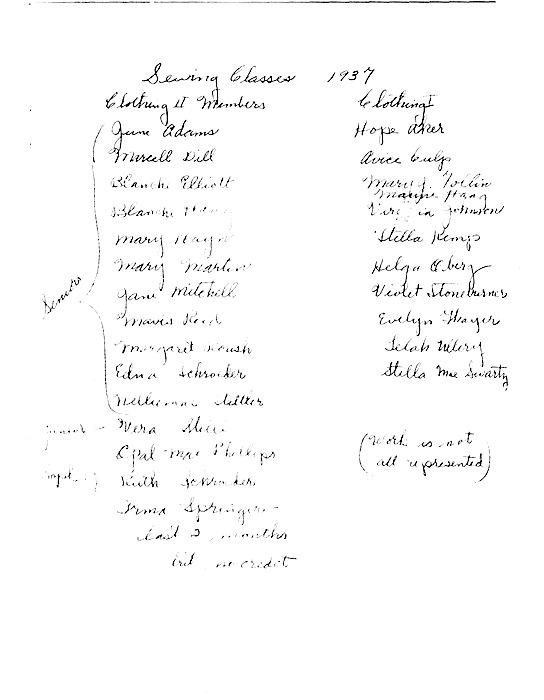 Sewing Classes 1937
Clothing II Members
June Adams
Marcell Dill
Blanche Elliott
Blanche
Mary
Mary Martin
Jane Mitchell
Mavis Reed
Margaret Roush
Edna Schroeder
Seniors
Vera
Opal Mae Phillips
Ruth Schroeder
Irma Springer
last 2 months
but no credit
Clothing I
Hope Aker
Avice Culp
Mary J. Tollin
Maxine Haag
Virginia Johnson
Stella Kemp
Helga Oberg
Violet Stoneburner
Evelyn Thayer
Selah Ullery
Stella Mae Swartz
(Work is not
all represented)